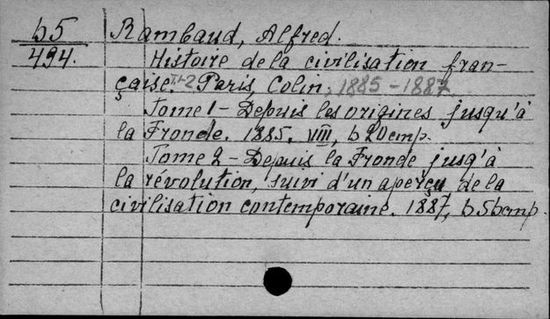 b5
494.
Rambaud, Alfred.
Histoire de la civilisation fran-
çaise. T.1-2 Paris, Colin, 1885-1887
Tome 1 - Depuis les origines jusqu'à
la Fronde. 1885. VIII, 620 стр.
Tome 2 - Depuis la Fronde jusq'à
la révolution, suivi d'un aperçu de la
civilisation contemporaine. 1887, 656 стр.